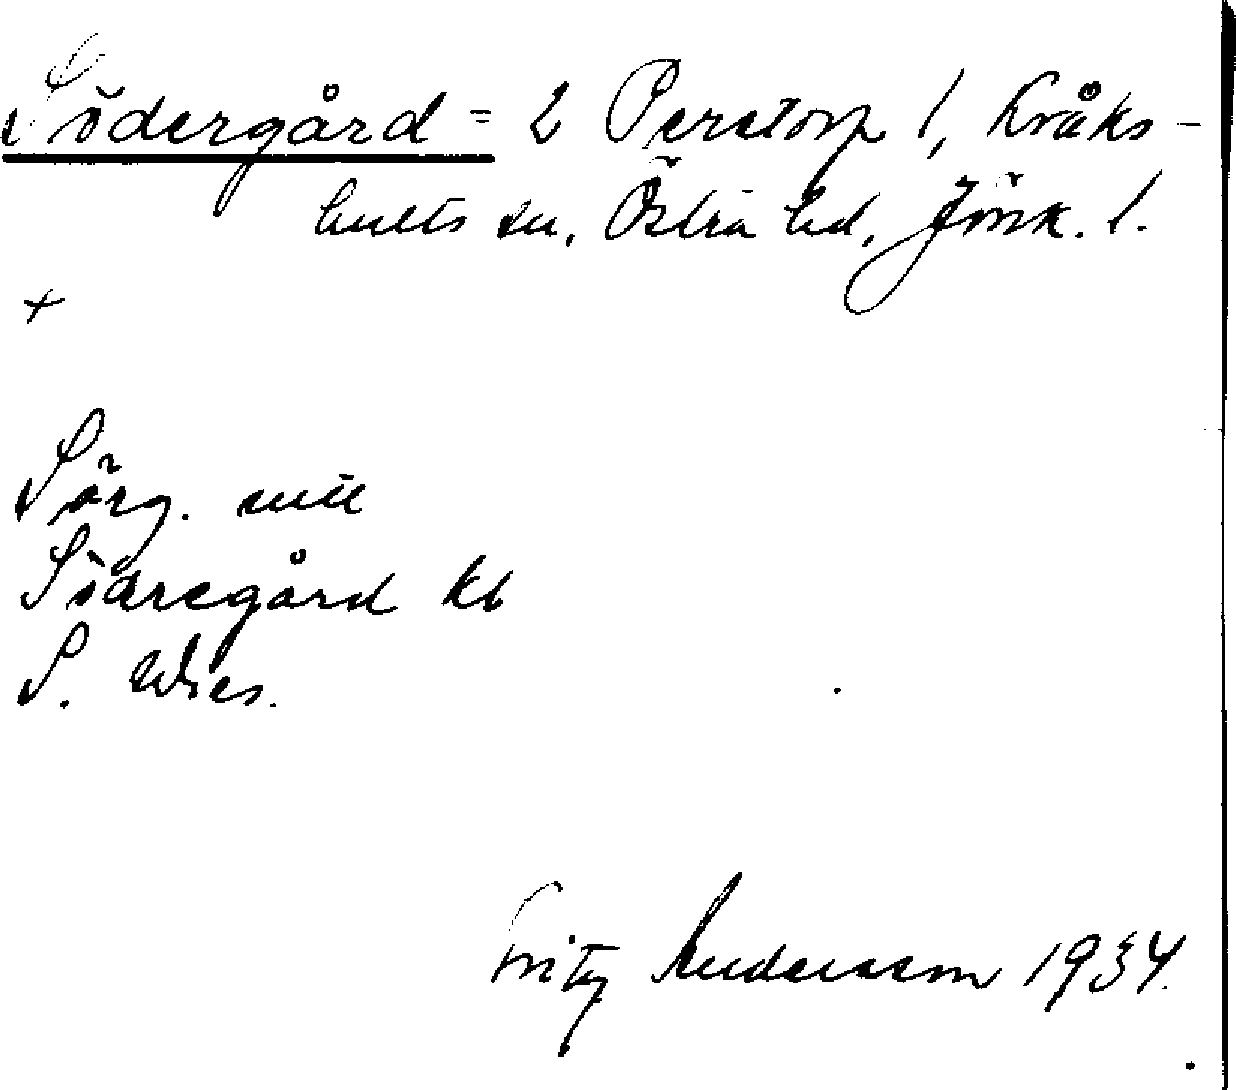 Södergård = 2 Perstorp 1, Kråks-
hults sn, Östra hd, Jönk. l.
+
Sörg. mtl
Södregård kb
S.
Fritz Andersson 1934.